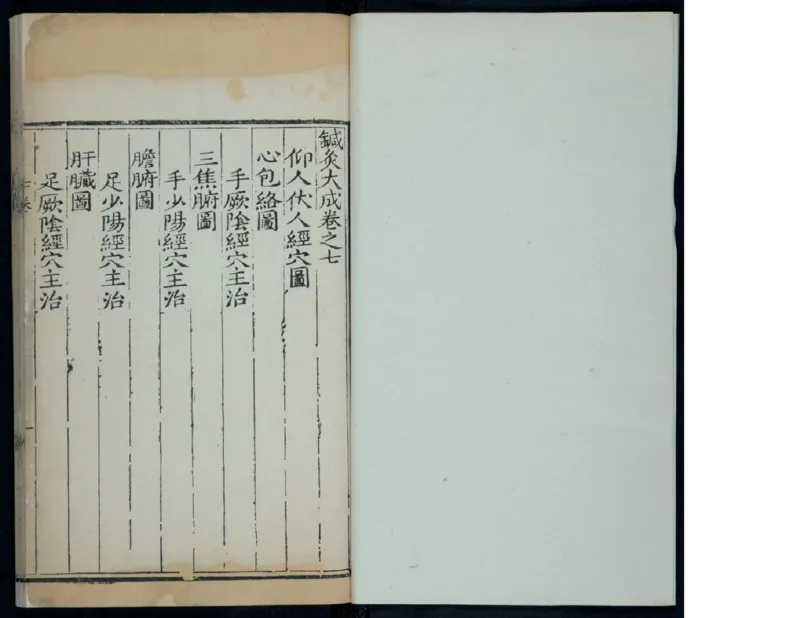 鍼灸大成卷之七
仰人伏人經穴圖
心包絡圖
手厥陰經穴主治
三焦腑圖
手少陽經穴主治
膽腑圖
足少陽經穴主治
肝臟圖
足厥陰經穴主治
七卷